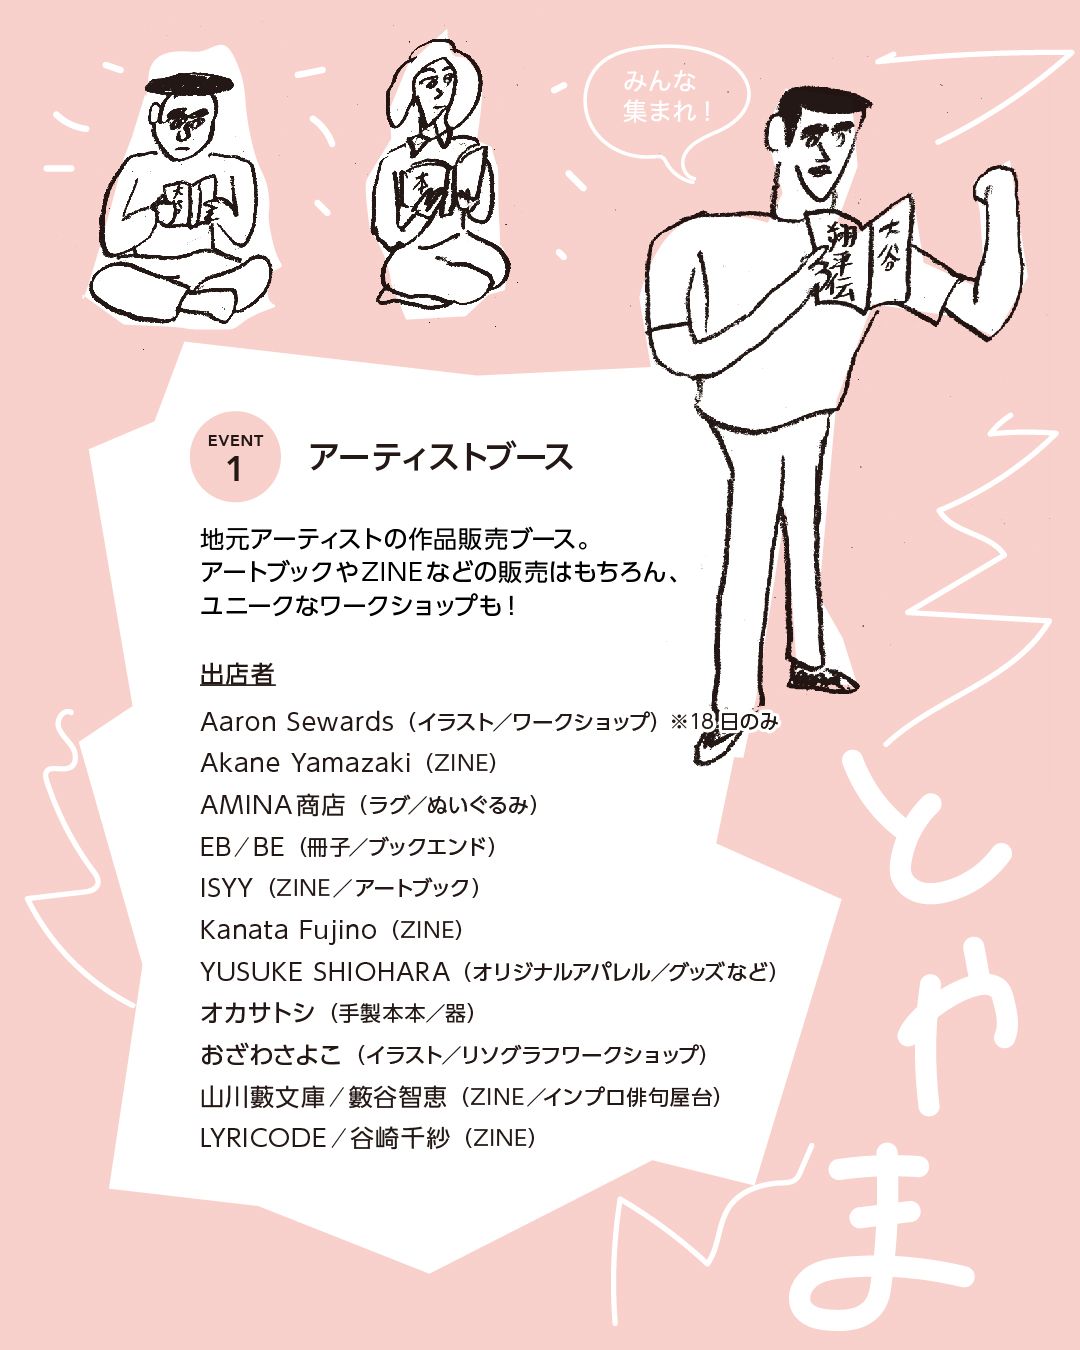 みんな
集まれ！
大谷
本
翔平伝
大谷
EVENT
1
アーティストブース
地元アーティストの作品販売ブース。
アートブックやZINEなどの販売はもちろん、
ユニークなワークショップも！
出店者
Aaron Sewards（イラスト／ワークショップ）※18日のみ
Akane Yamazaki（ZINE）
AMINA商店（ラグ／ぬいぐるみ）
EB／BE（冊子／ブックエンド）
ISYY（ZINE／アートブック）
Kanata Fujino（ZINE）
YUSUKE SHIOHARA（オリジナルアパレル／グッズなど）
オカサトシ（手製本本／器）
おざわさよこ（イラスト／リソグラフワークショップ）
山川藪文庫／籔谷智恵（ZINE／インプロ俳句屋台）
LYRICODE／谷崎千紗（ZINE）
とやま